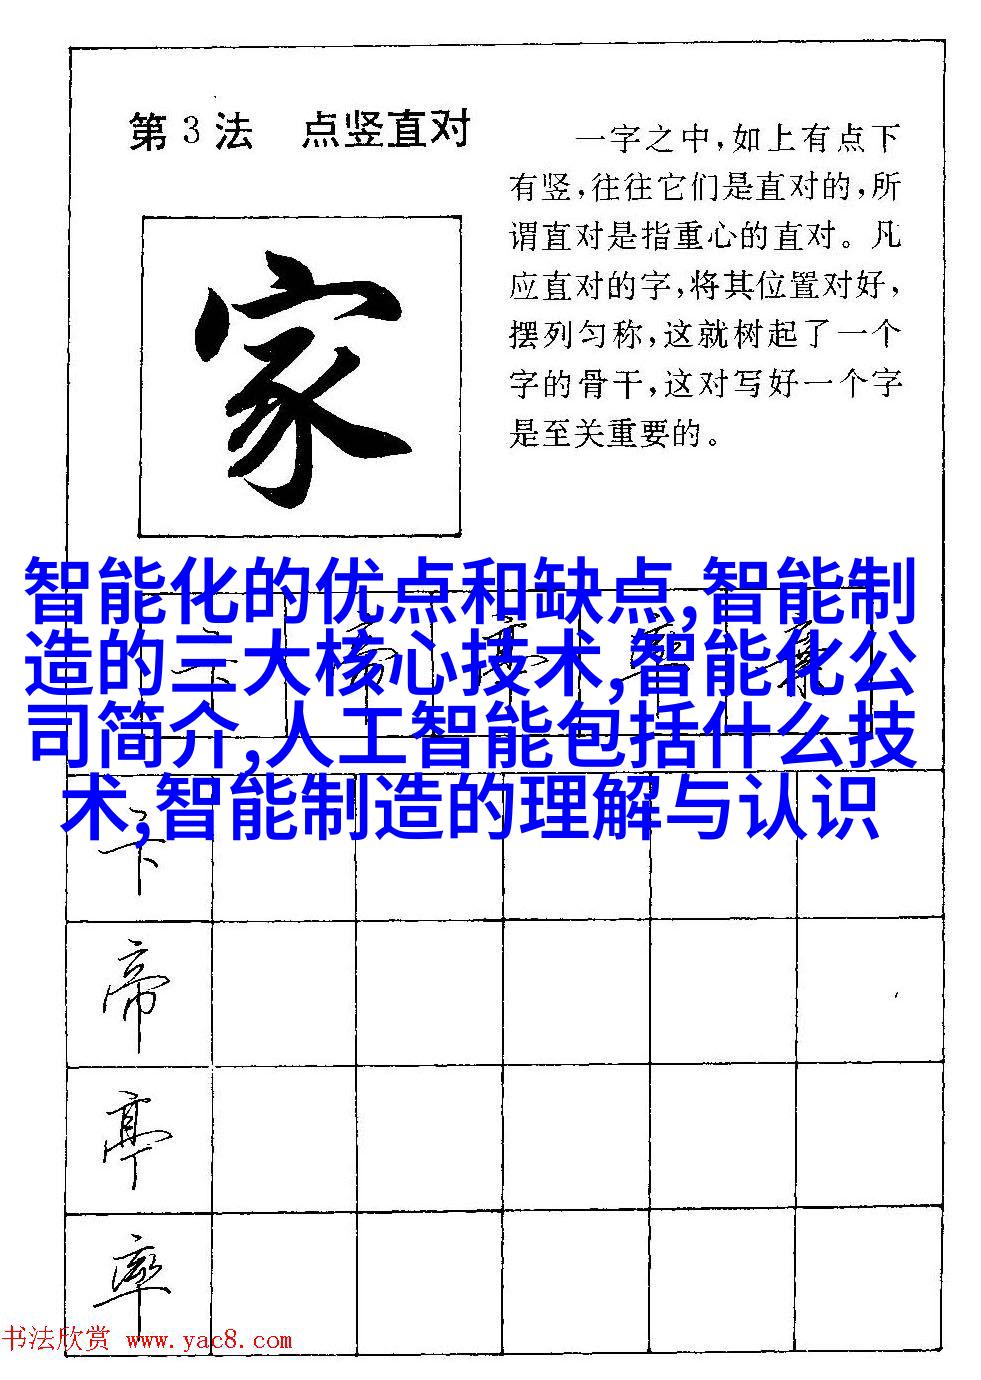 第3法 点竖直对
一字之中,如上有点下
有竖,往往它们是直对的,所
谓直对是指重心的直对。凡
应直对的字,将其位置对好,
摆列匀称,这就树起了一个
字的骨干,这对写好一个字
是至关重要的。
家
智能化的优点和缺点,智能制
造的三大核心技术,智能化公
司简介,人工智能包括什么技
术,智能制造的理解与认识
卞
帝
亭
率
书法欣赏 www.yac8.com